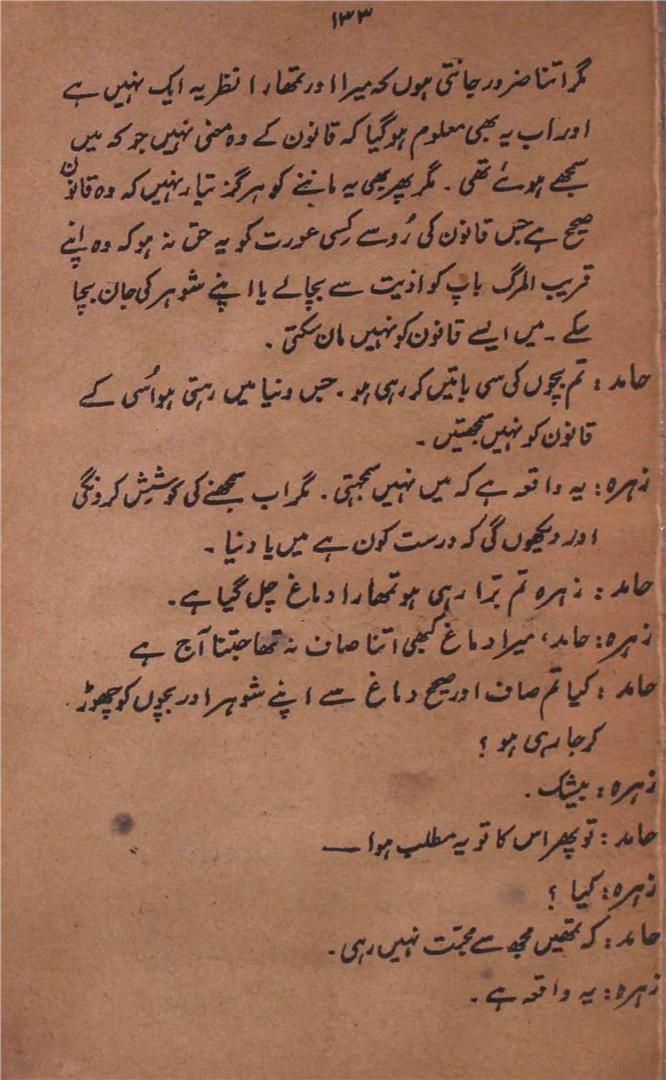 ۱۳۳
مگر اتنا ضرور جانتی ہوں کہ میرا اور تمھارا نظریہ ایک نہیں ہے
اور اب یہ بھی معلوم ہو گیا کہ قانون کے وہ معنی نہیں جو کہ میں
سمجھے ہوئے تھی۔ مگر پھر بھی یہ ماننے کو ہرگز تیار نہیں کہ وہ قانون
صحیح ہے جس قانون کی رُو سے کسی عورت کو یہ حق نہ ہو کہ وہ اپنے
قریب المرگ باپ کو اذیت سے بچالے یا اپنے شوہر کی جان بچا
سکے۔ میں ایسے قانون کو نہیں مان سکتی۔
حامد: تم بچوں کی سی باتیں کر رہی ہو۔ جس دنیا میں رہتی ہو اُسی کے
قانون کو نہیں سمجھتیں۔
زہرہ: یہ واقعہ ہے کہ میں نہیں سمجہتی۔ مگر اب سمجھنے کی کوشِش کرونگی
اور دیکھوں گی کہ درست کون ہے میں یا دنیا۔
حامد: زہرہ تم بَرّا رہی ہو تمھارا دماغ چل گیا ہے۔
زہرہ: حامد، میرا دماغ کبھی اتنا صاف نہ تھا جتنا آج ہے
حامد: کیا تم صاف اور صحیح دماغ سے اپنے شوہر اور بچوں کو چھوڑ
کر جا رہی ہو؟
زہرہ: بیشک۔
حامد: تو پھر اس کا تو یہ مطلب ہوا —
زہرہ: کیا؟
حامد: کہ تمھیں مجھ سے محبّت نہیں رہی۔
زہرہ: یہ واقعہ ہے۔